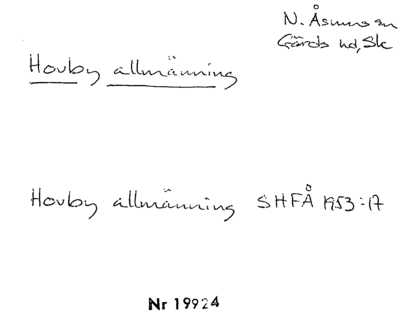 N. Åsum sn
Gärds hd, Sk
Hovby allmänning
Hovby allmänning SHFÅ 1953:17
Nr 19924